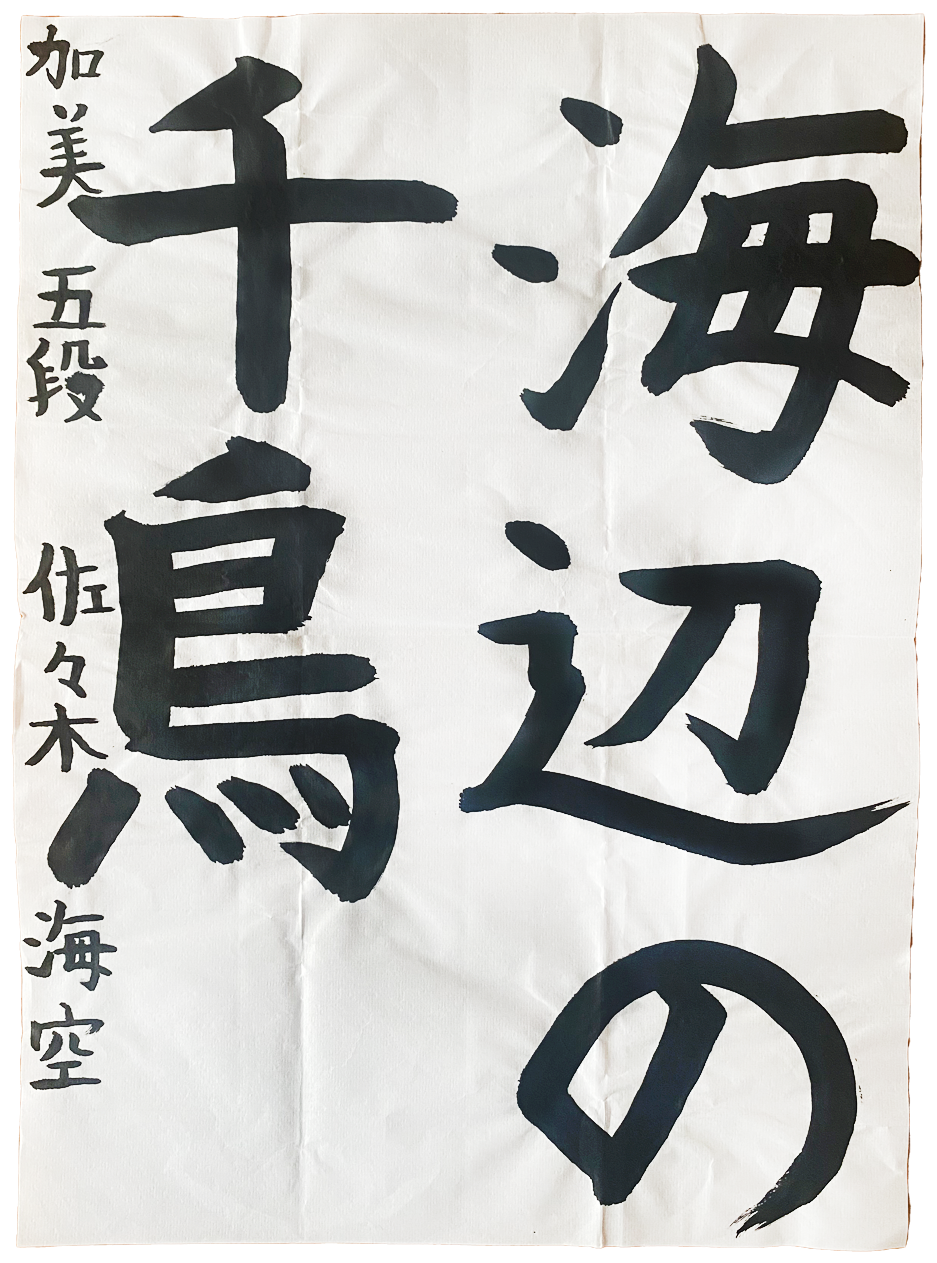 海辺の
千鳥
加美 五段 佐々木 海空